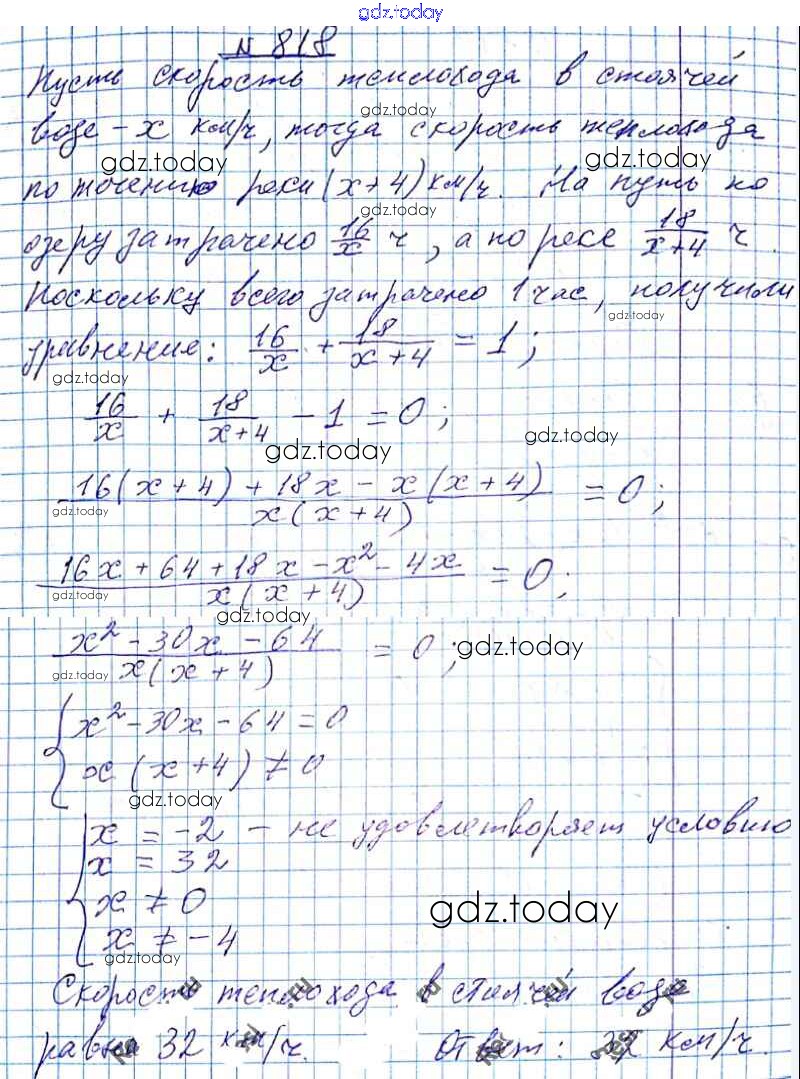 gdz.today
N 818
Пусть скорость теплохода в стоячей
gdz.today
воде – x км/ч, тогда скорость теплохода
gdz.today gdz.today
по течению реки (x+4) км/ч. На путь по
gdz.today
озеру затрачено 16/x ч, а по реке 18/(x+4) ч.
Поскольку всего затрачено 1 час, получили
gdz.today
уравнение: 16/x + 18/(x+4) = 1;
gdz.today
16/x + 18/(x+4) – 1 = 0;
gdz.today gdz.today
(16(x+4) + 18x – x(x+4))/(x(x+4)) = 0;
gdz.today
(16x + 64 + 18x – x² – 4x)/(x(x+4)) = 0;
gdz.today
gdz.today
(x² – 30x – 64)/(x(x+4)) = 0;
gdz.today gdz.today
{ x² – 30x – 64 = 0
x(x+4) ≠ 0
gdz.today
{ x = –2 – не удовлетворяет условию
x = 32
x ≠ 0
gdz.today
x ≠ –4
gdz.today
Скорость теплохода в стоячей воде
равна 32 км/ч. Ответ: 32 км/ч.